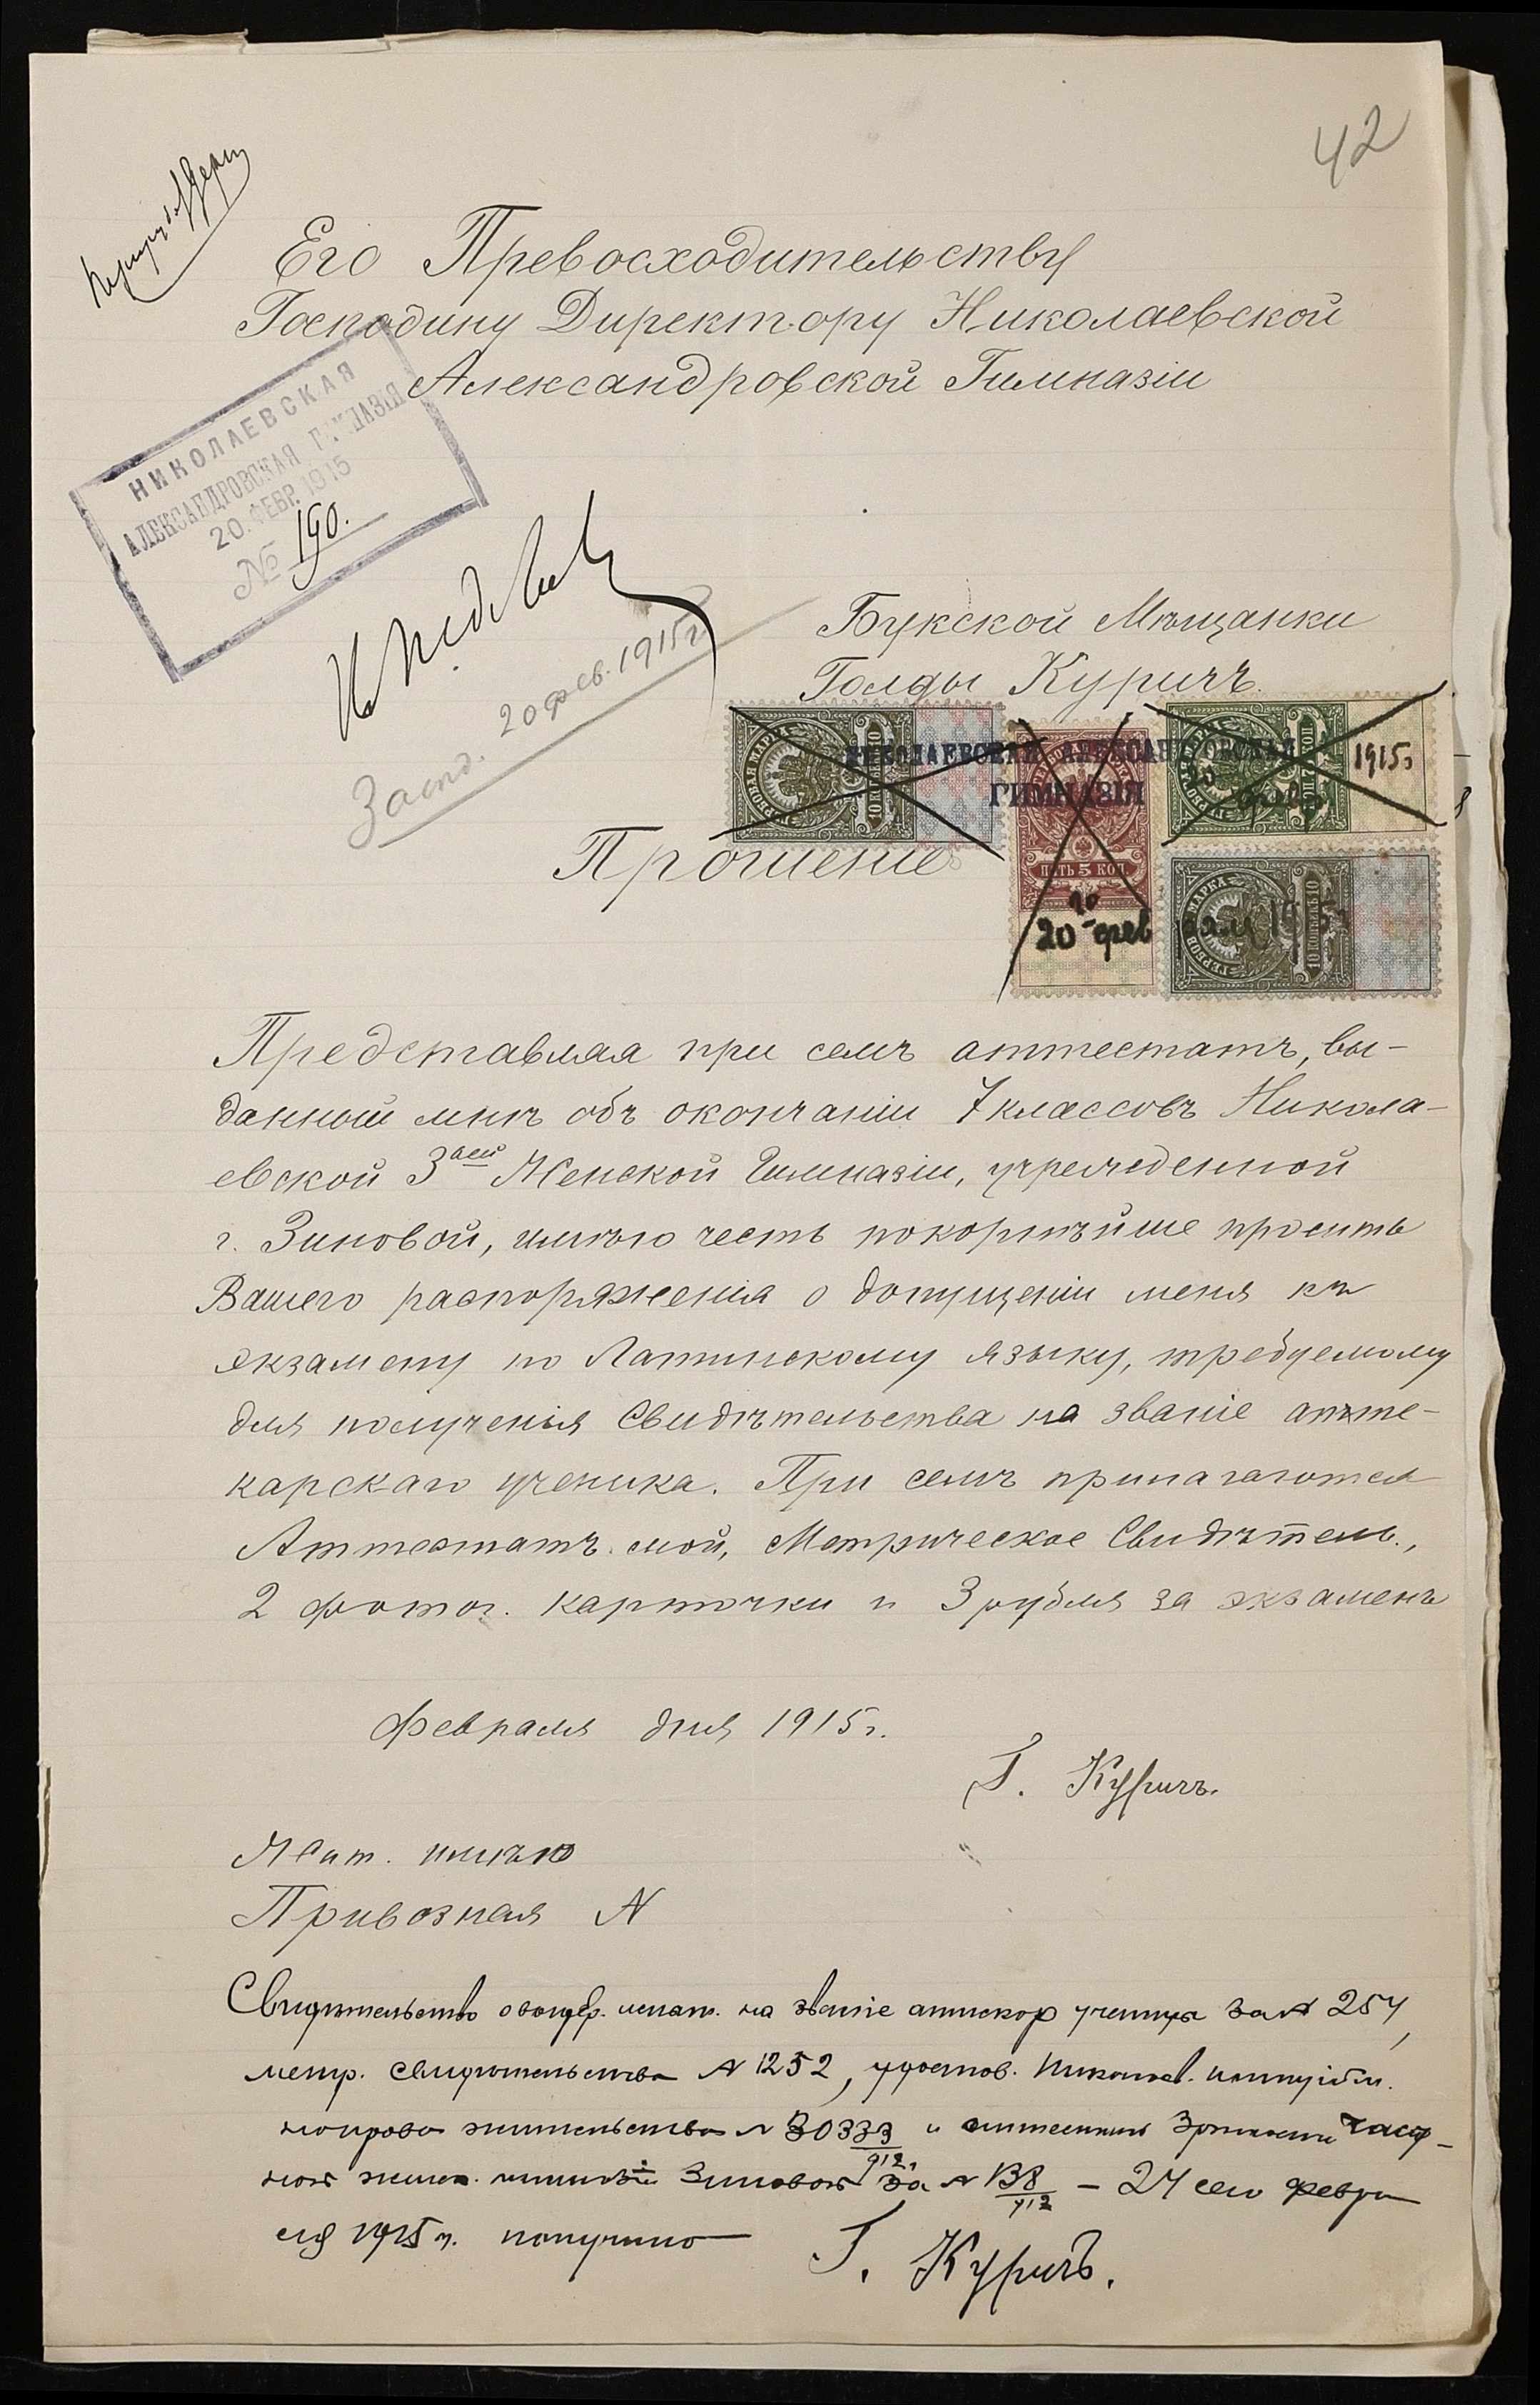 42
Его Превосходительству
Господину Директору Николаевской
Александровской Гимназіи
НИКОЛАЕВСКАЯ
АЛЕКСАНДРОВСКАЯ ГИМНАЗІЯ
20. ФЕВР. 1915
№ 190.
Засвид. 20 фев. 1915 г.
Букской Мѣщанки
Голды Куричъ.
НИКОЛАЕВСКАЯ АЛЕКСАНДРОВСКАЯ
ГИМНАЗІЯ
ГЕРБОВАЯ МАРКА
10 КОПѢЕКЪ 10
ПЯТЬ 5 КОП.
1915 г
20 фев
раля 1915 г
Прошеніе
Представляя при семъ аттестатъ, вы-
данный мнѣ объ окончаніи 7 классовъ Никола-
евской 3ьей Женской Гимназіи, учрежденной
г. Зиновой, имѣю честь покорнѣйше просить
Вашего распоряженія о допущеніи меня къ
экзамену по Латинскому языку, требуемому
для полученія Свидѣтельства на званіе апте-
карскаго ученика. При семъ прилагаются
Аттестатъ мой, Метрическое Свидѣтель.,
2 фотог. карточки и 3 рубля за экзаменъ
Февраля дня 1915 г.
Г. Куричъ.
Жит. имѣю
Привозная N
Свидѣтельство на званіе аптекар ученицы за N 257,
метр. свидѣтельство N 1252, удостов. Николаев. полиціи
на право жительства N 30333/912 и аттестатъ част-
ной женск. гимназіи Зиновой за N 138/912 – 24 сего февра
ля 1915 г. получила Г. Куричъ.